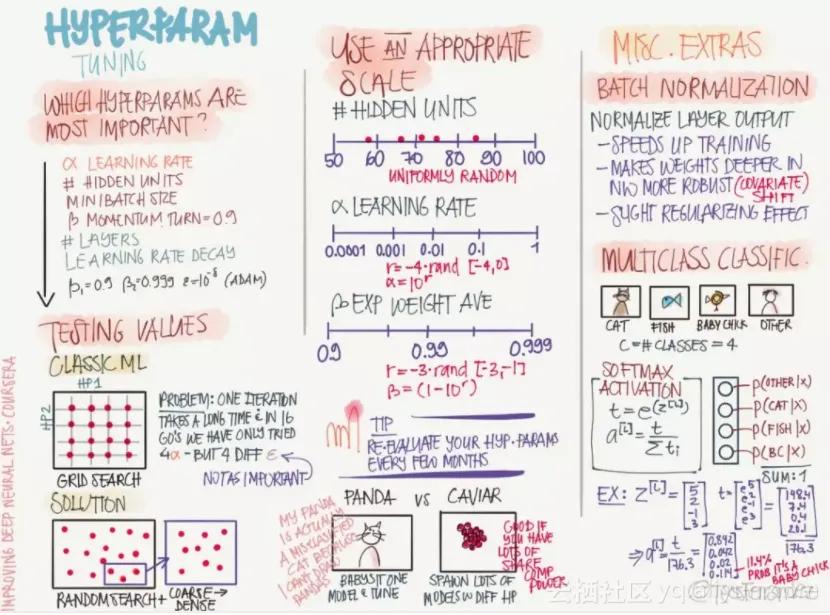 HYPERPARAM
TUNING
WHICH HYPERPARAMS ARE
MOST IMPORTANT?
α LEARNING RATE
# HIDDEN UNITS
MINIBATCH SIZE
β MOMENTUM TURN=0.9
# LAYERS
LEARNING RATE DECAY
β₁=0.9 β₂=0.999 ε=10⁻⁸ (ADAM)
TESTING VALUES
CLASSIC ML
HP1
HP2
GRID SEARCH
PROBLEM: ONE ITERATION
TAKES A LONG TIME & IN 16
GO'S WE HAVE ONLY TRIED
4α - BUT 4 DIFF ε
NOT AS IMPORTANT
SOLUTION
RANDOM SEARCH +
COARSE →
DENSE
IMPROVING DEEP NEURAL NETS · COURSERA
USE AN APPROPRIATE
SCALE
# HIDDEN UNITS
50 60 70 80 90 100
UNIFORMLY RANDOM
α LEARNING RATE
0.0001 0.001 0.01 0.1 1
r=-4·rand [-4,0]
α=10ʳ
β EXP WEIGHT AVE
0.9 0.99 0.999
r=-3·rand [-3,-1]
β=(1-10ʳ)
TIP
RE-EVALUATE YOUR HYP·PARAMS
EVERY FEW MONTHS
PANDA VS CAVIAR
MY PANDA
IS ACTUALLY
A MISCLASSIFIED
CAT BECAUSE
I CANT DRAW
PANDAS
BABYSIT ONE
MODEL & TUNE
GOOD IF
YOU HAVE
LOTS OF
SHARE
COMP
POWER
SPAWN LOTS OF
MODELS W DIFF HP
MISC. EXTRAS
BATCH NORMALIZATION
NORMALIZE LAYER OUTPUT
- SPEEDS UP TRAINING
- MAKES WEIGHTS DEEPER IN
NW MORE ROBUST (COVARIATE)
SHIFT
- SLIGHT REGULARIZING EFFECT
MULTICLASS CLASSIFIC.
CAT FISH BABY CHICK OTHER
C=# CLASSES = 4
SOFTMAX
ACTIVATION
t=e^(z^[L])
a^[L]=t/Σtᵢ
P(OTHER|X)
P(CAT|X)
P(FISH|X)
P(BC|X)
SUM:1
EX: Z^[L]=[5 2 -1 3] t=[e⁵ e² e⁻¹ e³]=[148.4 7.4 0.4 20.1]
176.3
⇒ a^[L] t/176.3 [0.842 0.042 0.02 0.114]
11.4%
PROB IT'S A
BABY CHICK
云栖社区